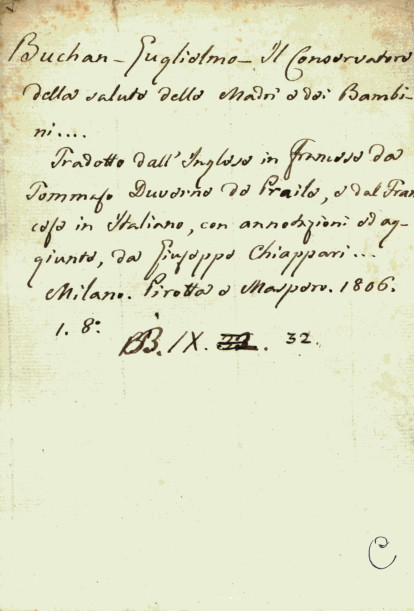 Buchan - Guglielmo - Il Conservatore
della salute delle Madri e dei Bambi-
ni....
Tradotto dall' Inglese in francese da
Tommaso Duverne de Praile, e dal Fran
cese in Italiano, con annotazioni ed ag-
giunte, da Giuseppe Chiappari...
Milano. Pirotta e Maspero. 1806.
1. 8.º
BB. IX. 32.
C